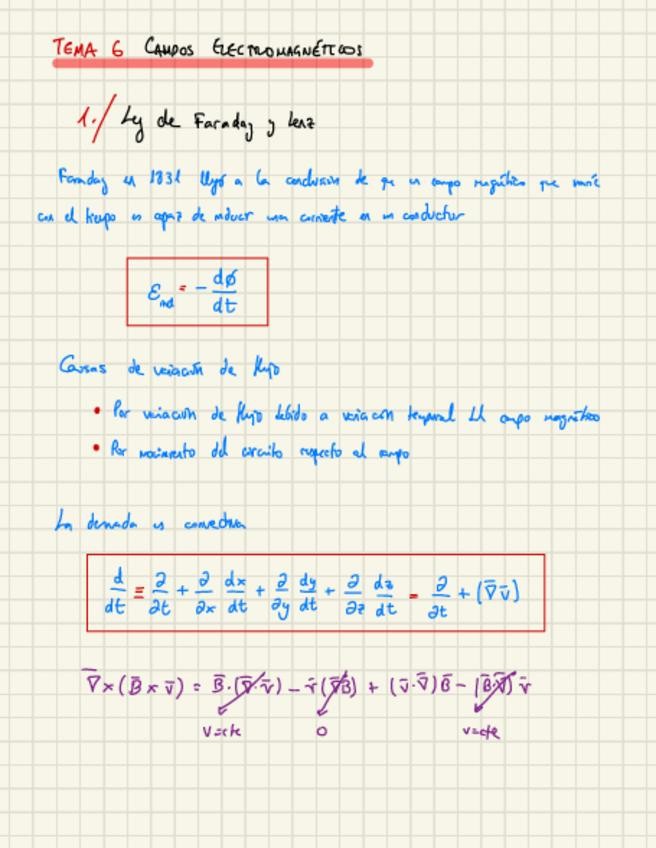 TEMA 6 CAMPOS ELECTROMAGNÉTICOS
1./ Ley de Faraday y Lenz
Faraday en 1831 llegó a la conclusión de que un campo magnético que varíe
con el tiempo es capaz de inducir una corriente en un conductor
ε_ind = - dϕ/dt
Causas de variación de flujo
• Por variación de flujo debido a variación temporal del campo magnético
• Por movimiento del circuito respecto al campo
La derivada es convectiva
d/dt ≡ ∂/∂t + ∂/∂x dx/dt + ∂/∂y dy/dt + ∂/∂z dz/dt = ∂/∂t + (∇̄ v̄)
∇̄×(B̄×v̄) = B̄·(∇̄·v̄) - v̄(∇̄B̄) + (v̄·∇̄)B̄ - (B̄·∇̄)v̄
v=cte 0 v=cte